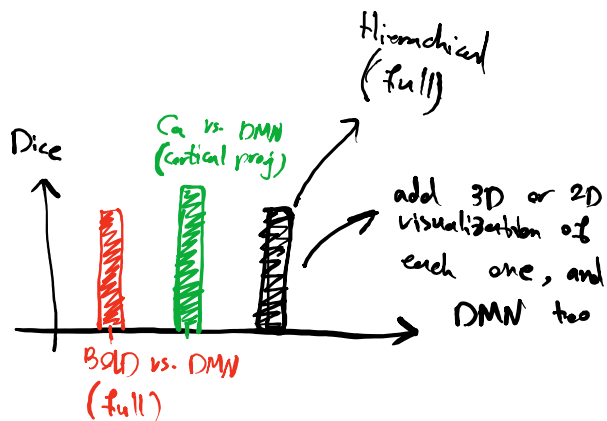 Hierachical
(full)
Ca vs. DMN
(cortical proj)
Dice
add 3D or 2D
visualization of
each one, and
DMN too
BOLD vs. DMN
(full)